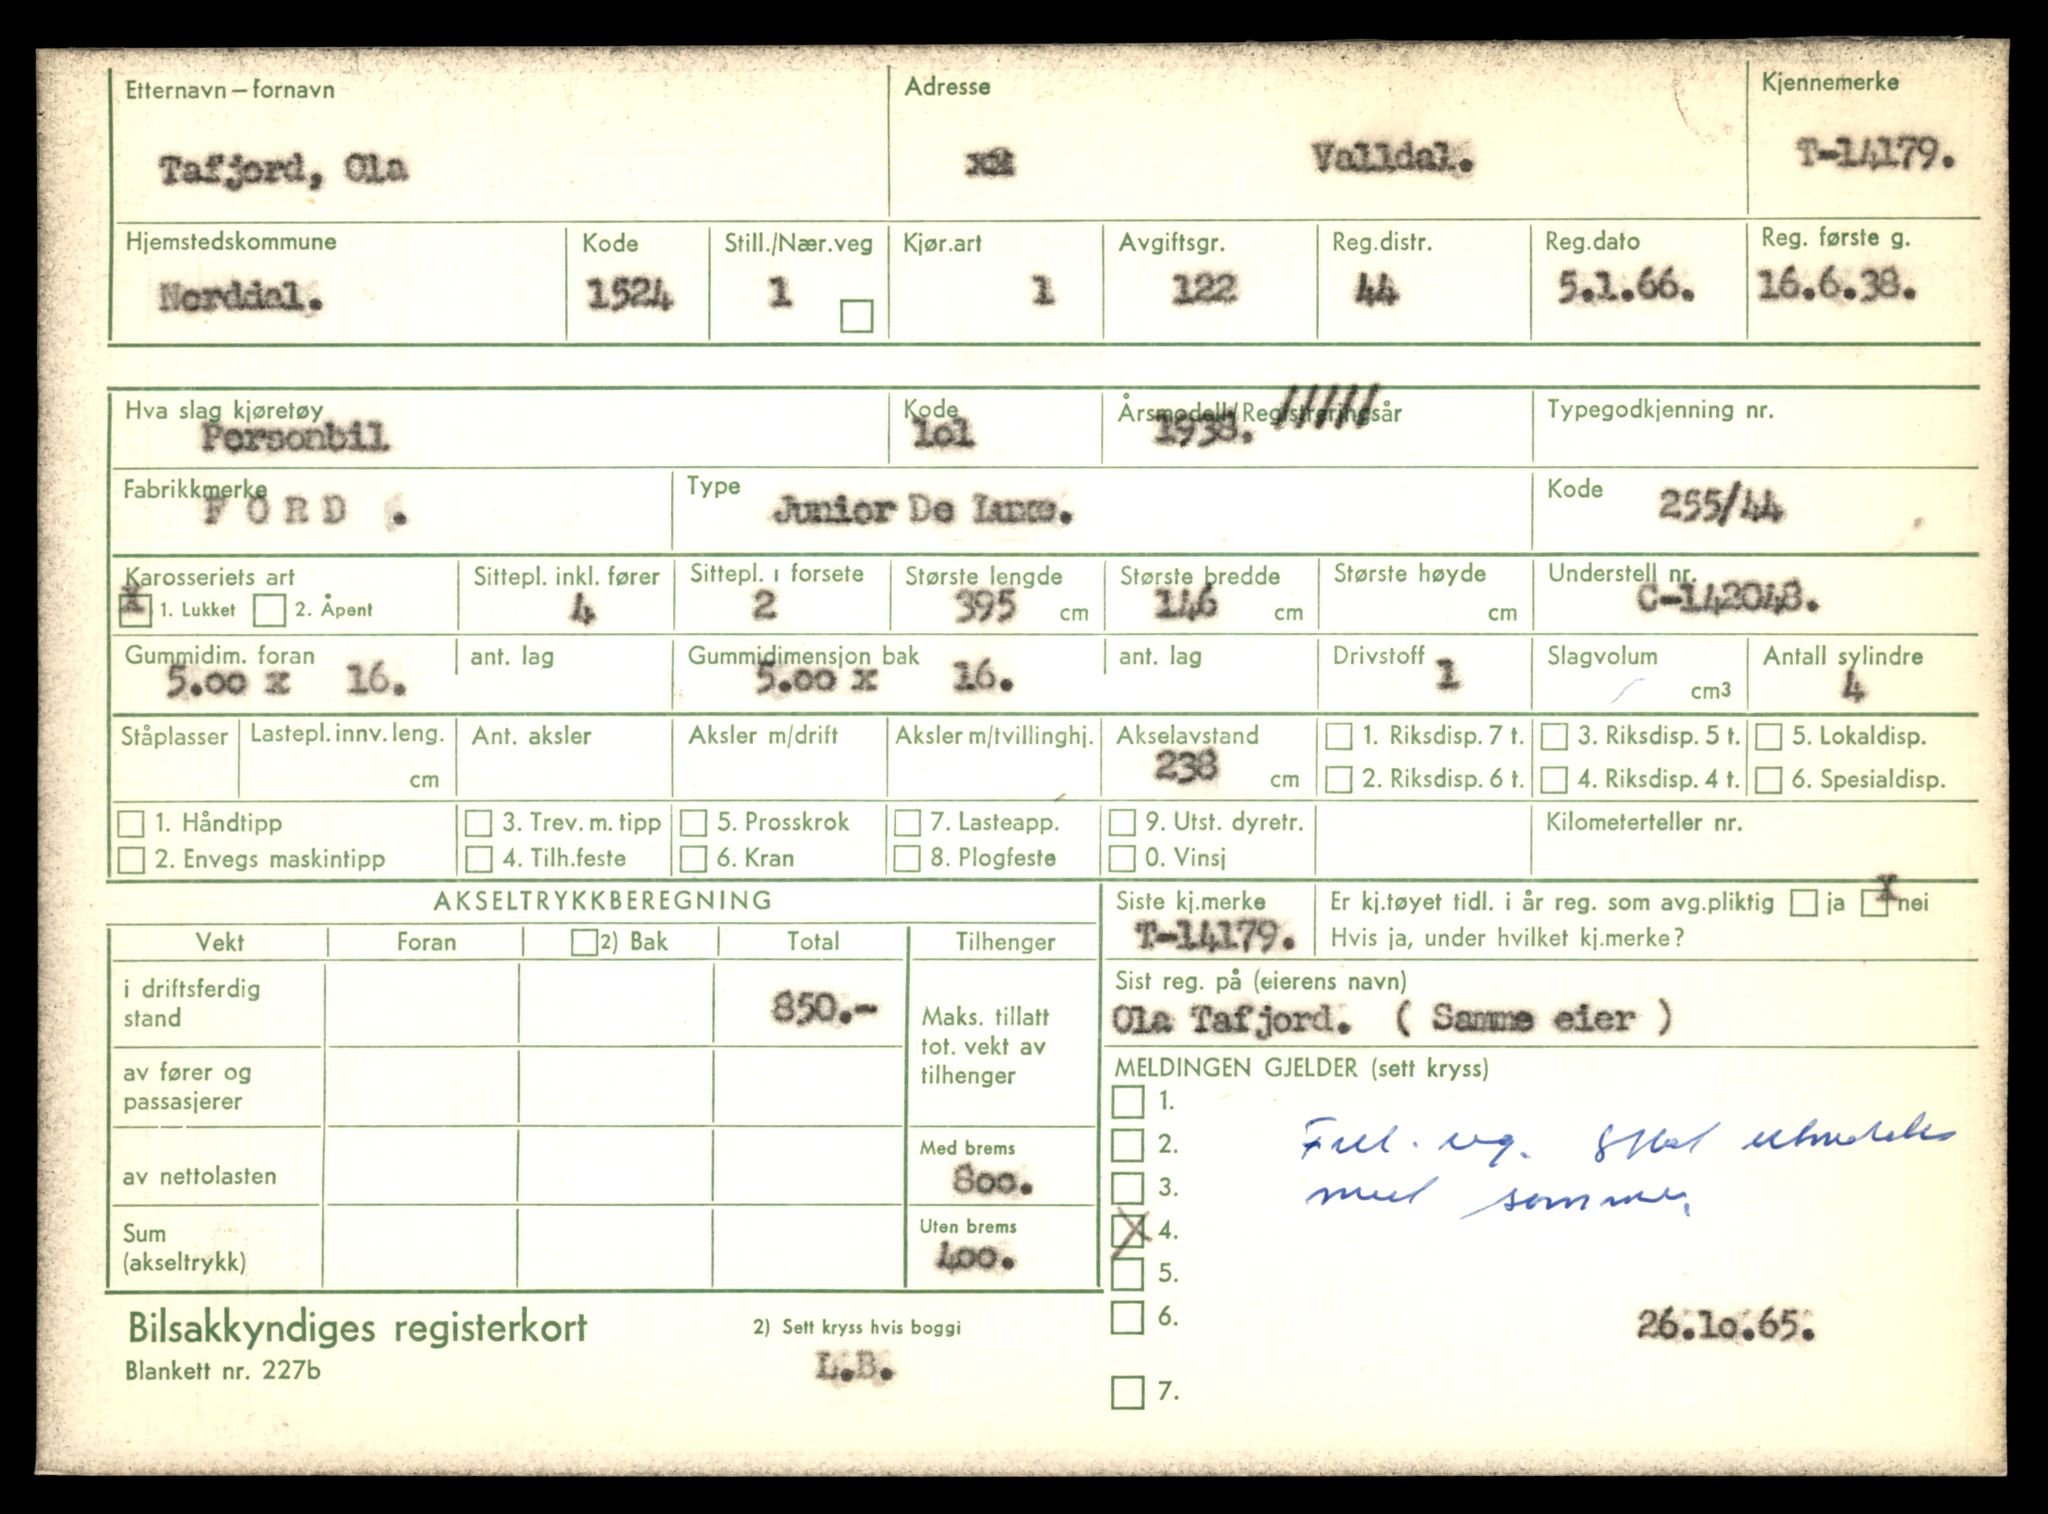 Etternavn – fornavn Adresse Kjennemerke
Tafjord, Ola Valldal. T-14179.
Hjemstedskommune Kode Still./Nær.veg Kjør.art Avgiftsgr. Reg.distr. Reg.dato Reg. første g.
Norddal. 1524 1 1 122 44 5.1.66. 16.6.38.
Hva slag kjøretøy Kode Årsmodell/Registreringsår Typegodkjenning nr.
Personbil 1o1 1938. /////
Fabrikkmerke Type Kode
FORD . Junior De Luxe. 255/44
Karosseriets art Sittepl. inkl. fører Sittepl. i forsete Største lengde Største bredde Største høyde Understell nr.
X 1. Lukket 2. Åpent 4 2 395 cm 146 cm cm C-142048.
Gummidim. foran ant. lag Gummidimensjon bak ant. lag Drivstoff Slagvolum Antall sylindre
5.oo x 16. 5.oo x 16. 1 cm3 4
Ståplasser Lastepl. innv. leng. Ant. aksler Aksler m/drift Aksler m/tvillinghj. Akselavstand 1. Riksdisp. 7 t. 3. Riksdisp. 5 t. 5. Lokaldisp.
cm 238 cm 2. Riksdisp. 6 t. 4. Riksdisp. 4 t. 6. Spesialdisp.
1. Håndtipp 3. Trev. m. tipp 5. Prosskrok 7. Lasteapp. 9. Utst. dyretr. Kilometerteller nr.
2. Envegs maskintipp 4. Tilh.feste 6. Kran 8. Plogfeste 0. Vinsj
AKSELTRYKKBEREGNING Siste kj.merke Er kj.tøyet tidl. i år reg. som avg.pliktig ja X nei
Vekt Foran 2) Bak Total Tilhenger T-14179. Hvis ja, under hvilket kj.merke?
i driftsferdig stand 850.- Maks. tillatt tot. vekt av tilhenger
Sist reg. på (eierens navn)
Ola Tafjord. ( Samme eier )
av fører og passasjerer
MELDINGEN GJELDER (sett kryss)
1.
2.
av nettolasten Med brems 8oo.
3. med sommer
Sum (akseltrykk) Uten brems 4oo.
X 4.
5.
6. 26.1o.65.
Bilsakkyndiges registerkort 2) Sett kryss hvis boggi
Blankett nr. 227b L.B.
7.